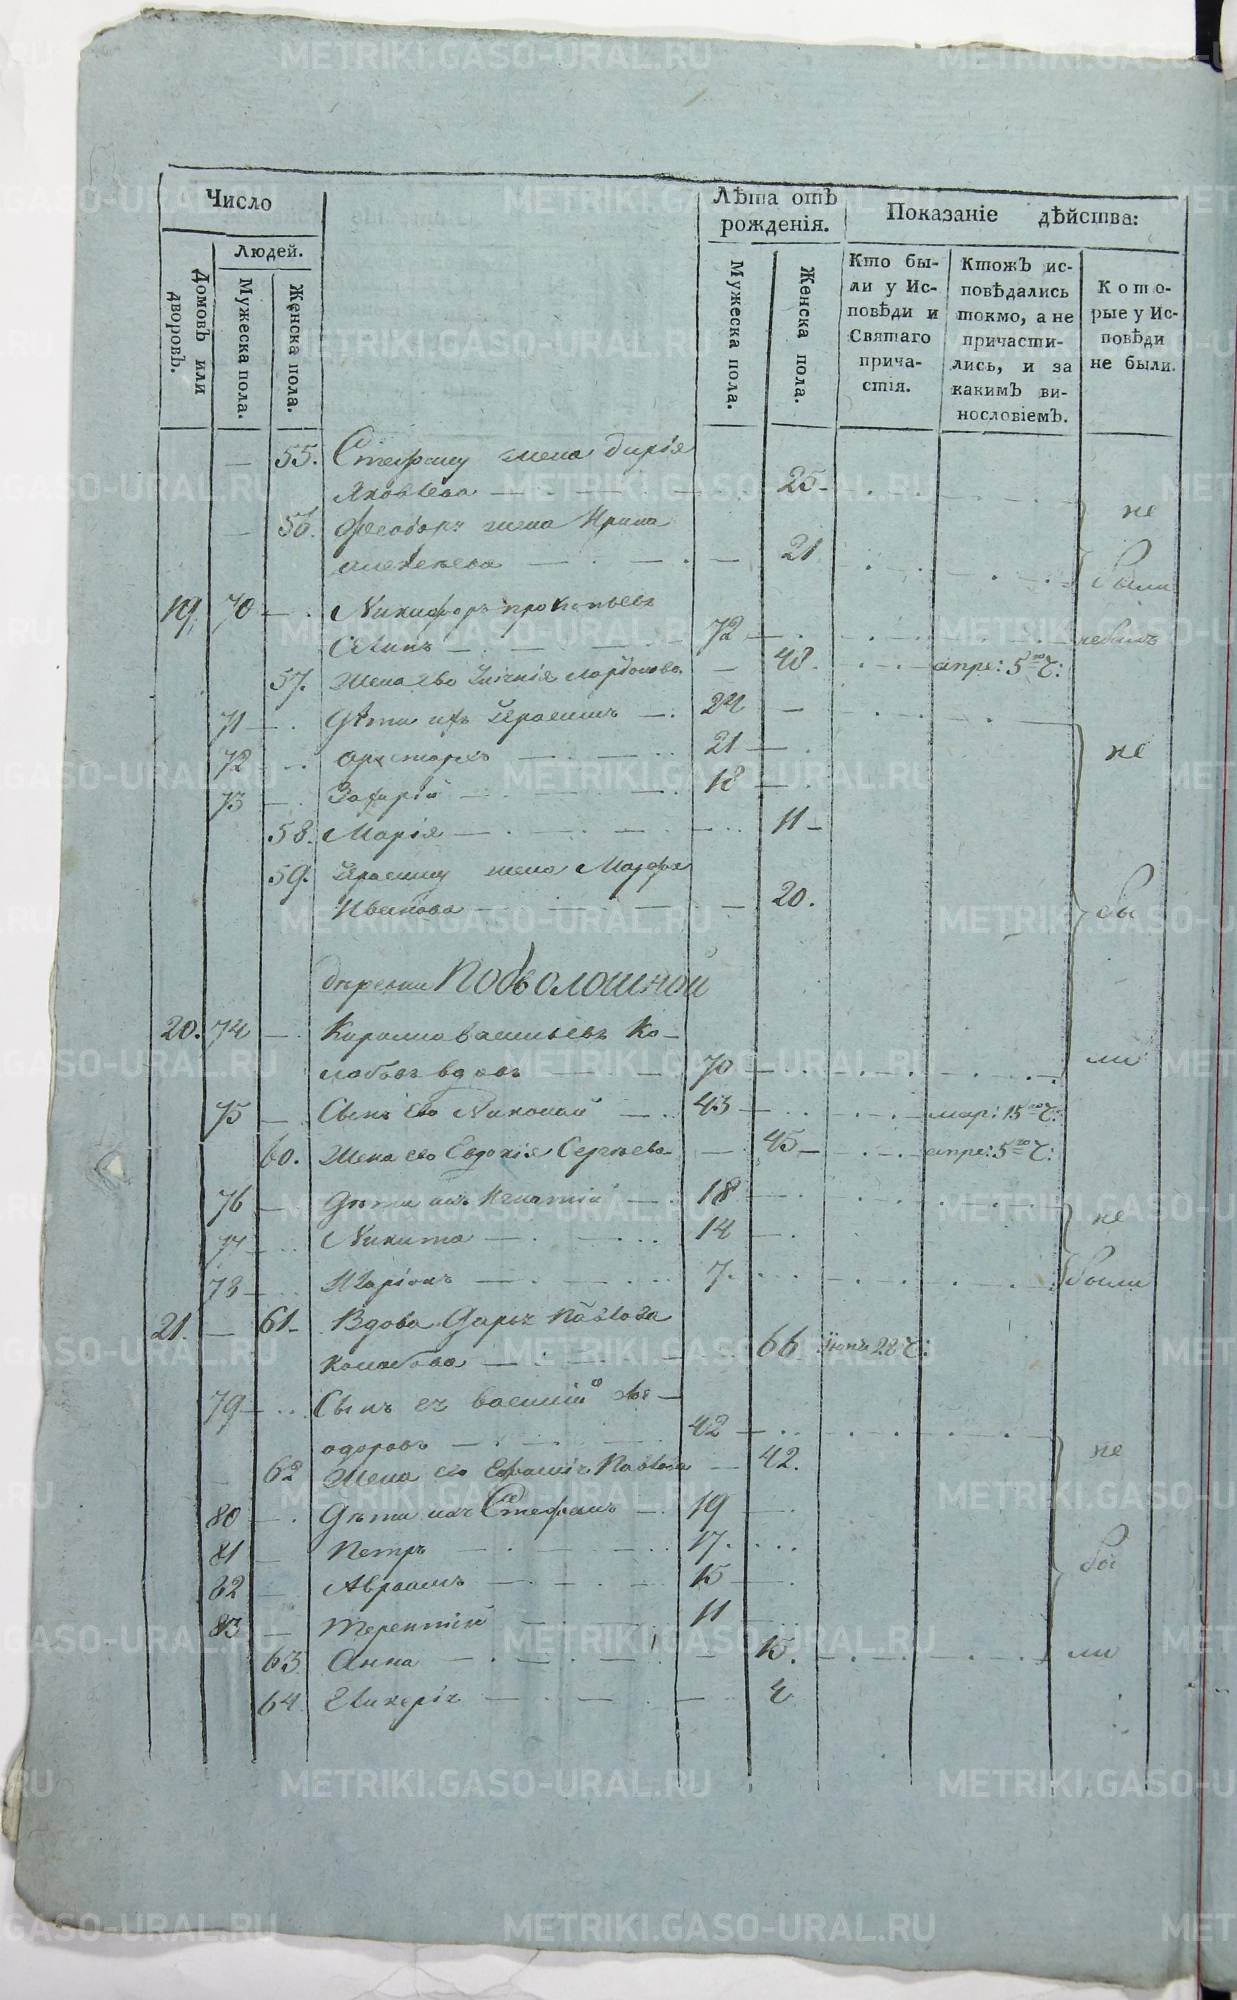 Число
Лѣта отъ рожденія.
Показаніе дѣйства:
Людей.
Домовъ или дворовъ.
Мужеска пола.
Женска пола.
Мужеска пола.
Женска пола.
Кто были у Исповѣди и Святаго причастія.
Ктожъ исповѣдались токмо, а не причастились, и за какимъ винословіемъ.
Которые у Исповѣди не были.
— 55. Стефану жена Дарія
Яковлева 25 не
— 56. Феодору жена Ирина
Алексѣева 21 были
19. 70 — Никифоръ Прокопьевъ
72 — небылъ
57. Жена ево Ларіонова — 48. апре: 5го ч:
71 — Дѣти ихъ Герасимъ — 24 —
72 Аристархъ 21 — не
73 — Захарій 18 —
58. Марія 11 —
59. Герасиму жена Марфа
Иванова 20. бы
деревни Подволошной
20. 74 — Васильевъ Ко-
лобовъ вдовъ 70 — ли
75 — Сынъ ево Николай 43 — мар: 15го ч:
60. Жена ево Евдокія Сергѣева — 45 — апре: 5го ч:
76 — Дѣти ихъ Игнатій 18 не
77 — Никита 14
78 — Иларіонъ 7. были
21. — 61 — Вдова Дарья Павлова
Колобова 66 Іюнь 28 ч:
79 — Сынъ ея Василій Фе-
одоровъ 42 — не
62 Жена ево Павлова — 42.
80 — Дѣти ихъ Стефанъ — 19 —
81 — Петръ 17.
82 — Авраамъ 15 — бы
83 — Терентій 11 —
63 Анна 15. ли
64 Гликерія
METRIKI.GASO-URAL.RU